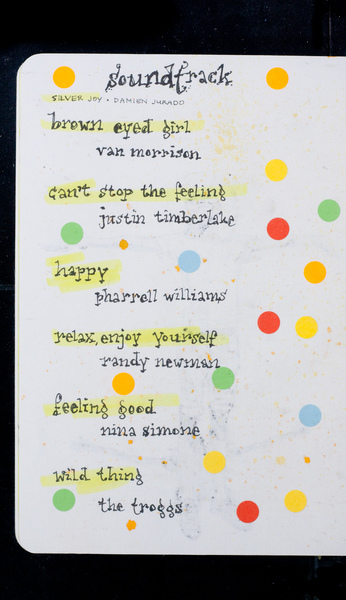 soundtrack
SILVER JOY • DAMIEN JURADO
brown eyed girl
van morrison
can't stop the feeling
justin timberlake
happy
pharrell williams
relax, enjoy yourself
randy newman
feeling good
nina simone
wild thing
the troggs